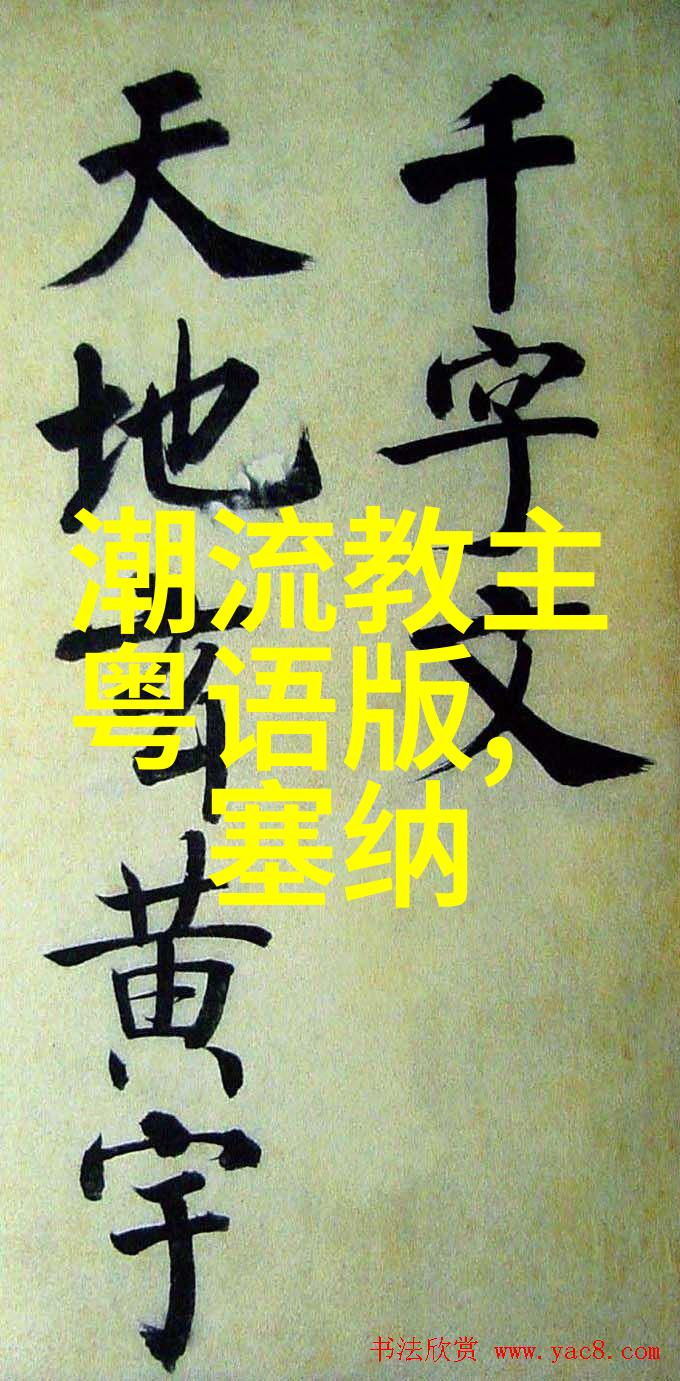 千字文
天地黄宇
潮流教主
粤语版,
塞纳
书法欣赏 www.yac8.com